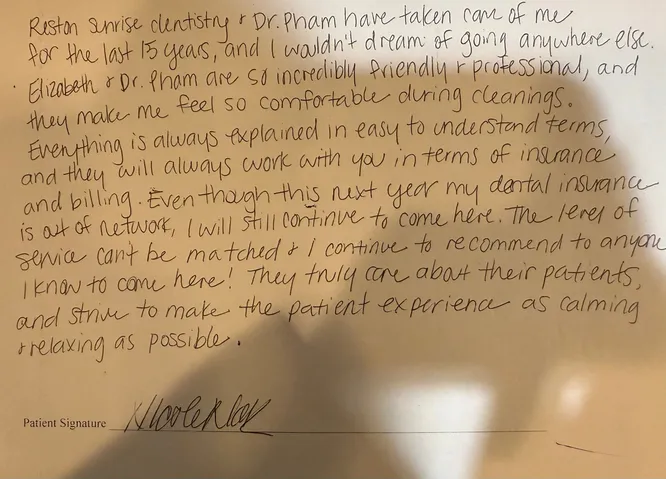 Reston Sunrise dentistry & Dr. Pham have taken care of me
for the last 15 years, and I wouldn't dream of going anywhere else.
Elizabeth & Dr. Pham are so incredibly friendly & professional, and
they make me feel so comfortable during cleanings.
Everything is always explained in easy to understand terms,
and they will always work with you in terms of insurance
and billing. Even though this next year my dental insurance
is out of network, I will still continue to come here. The level of
service can't be matched & I continue to recommend to anyone
I know to come here! They truly care about their patients,
and strive to make the patient experience as calming
& relaxing as possible.
Patient Signature